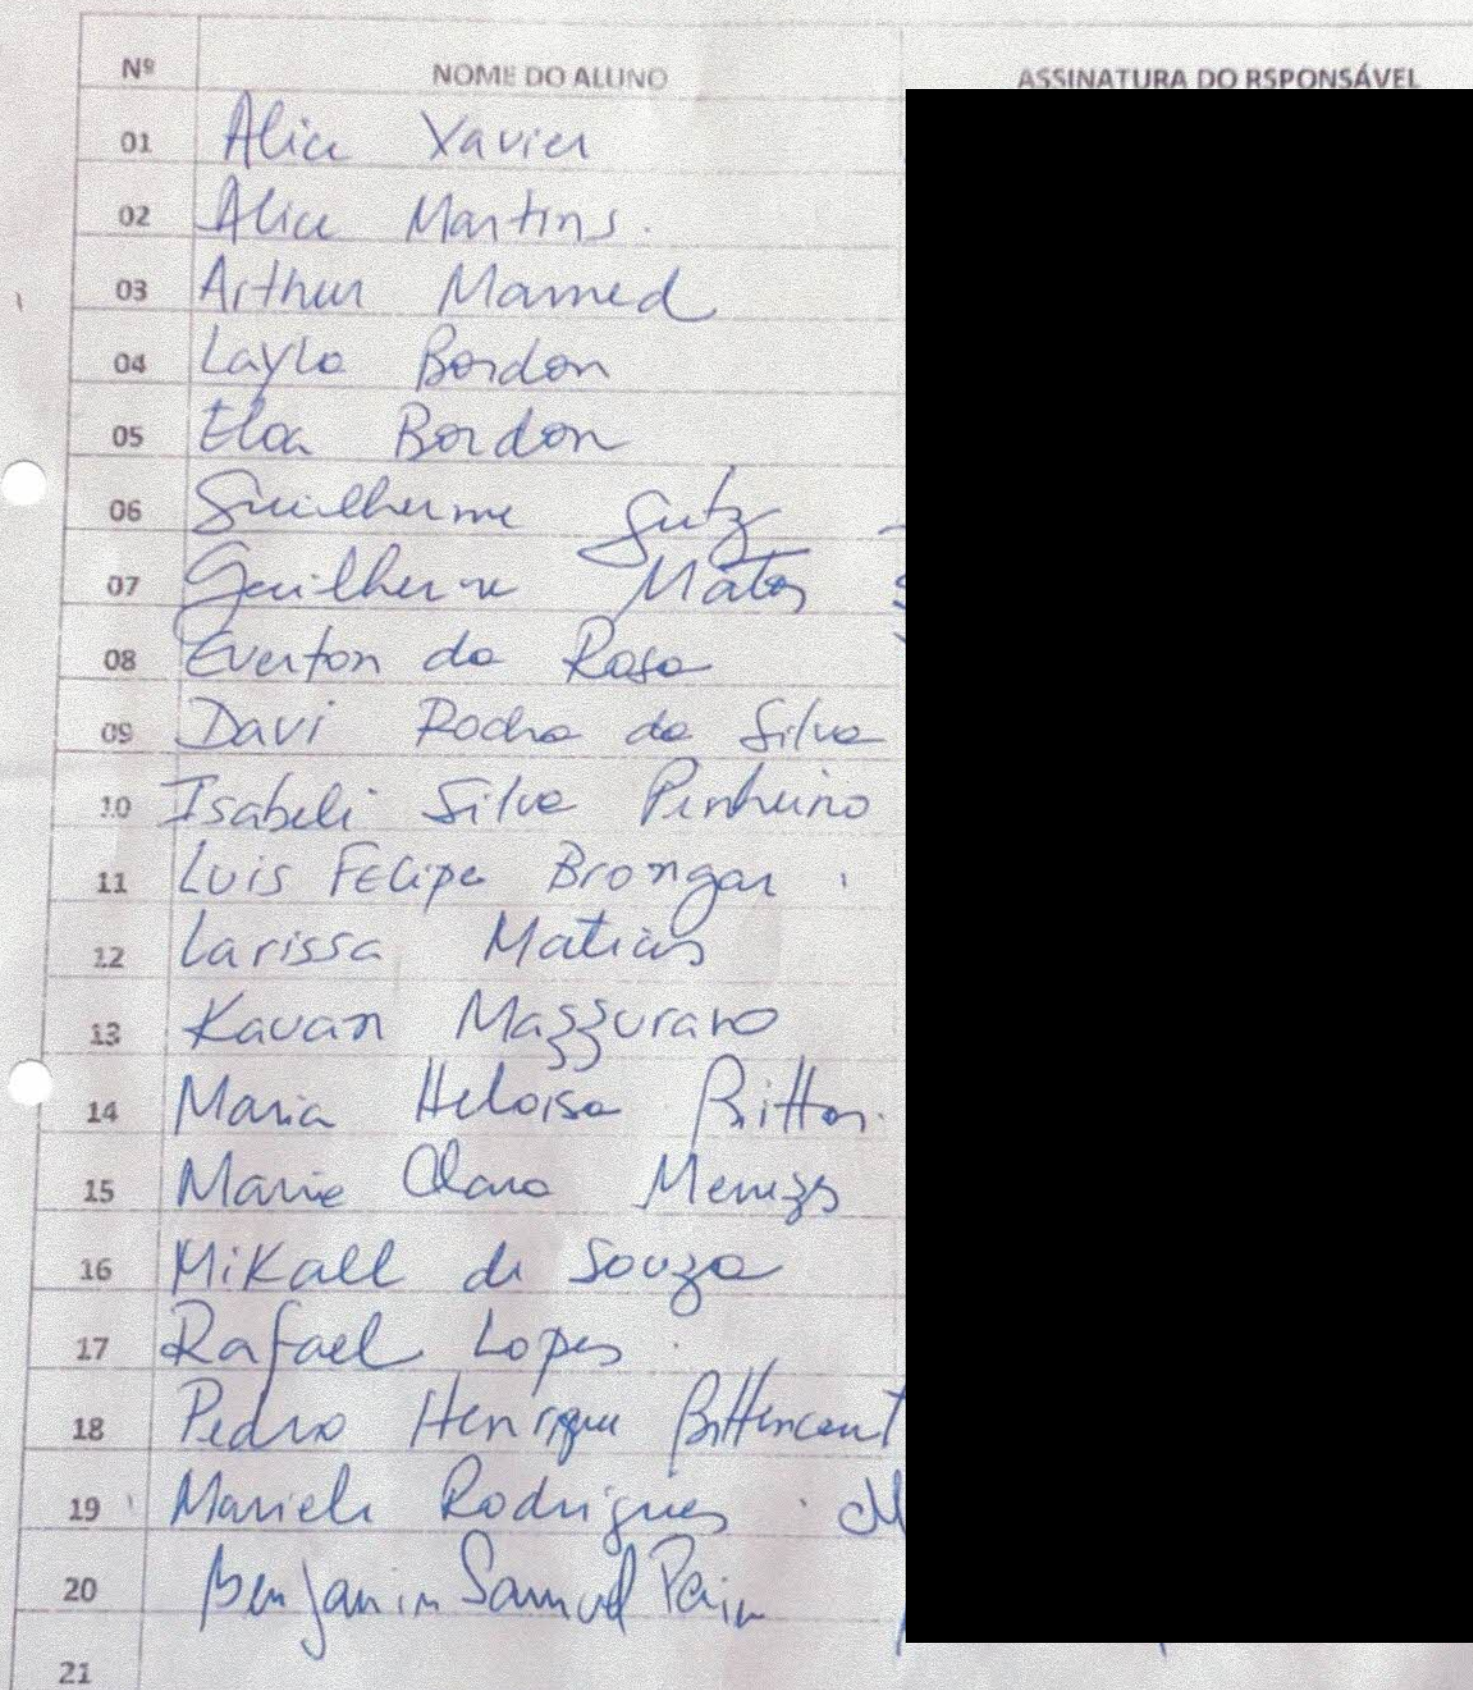 Nº NOME DO ALUNO ASSINATURA DO RSPONSÁVEL
01 Alice Xavier
02 Alice Martins.
03 Arthur Mamed
04 Layla Bordon
05 Eloa Bordon
06 Guilherme Gutz
07 Guilherme Matos
08 Everton da Rosa
09 Davi Rocha da Silva
10 Isabeli Silva Pinheiro
11 Luis Felipe Brongar
12 Larissa Matias
13 Kauan Mazzurano
14 Maria Heloisa
15 Maria Clara Menezes
16 Mikall de Souza
17 Rafael Lopes
18 Pedro Henrique
19 Marieli Rodrigues
20 Benjamin Samuel Paim
21